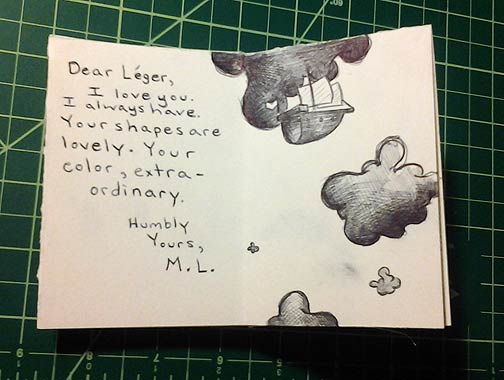 Dear Léger,
I love you.
I always have.
Your shapes are
lovely. Your
color, extra-
ordinary.
Humbly
Yours,
M.L.